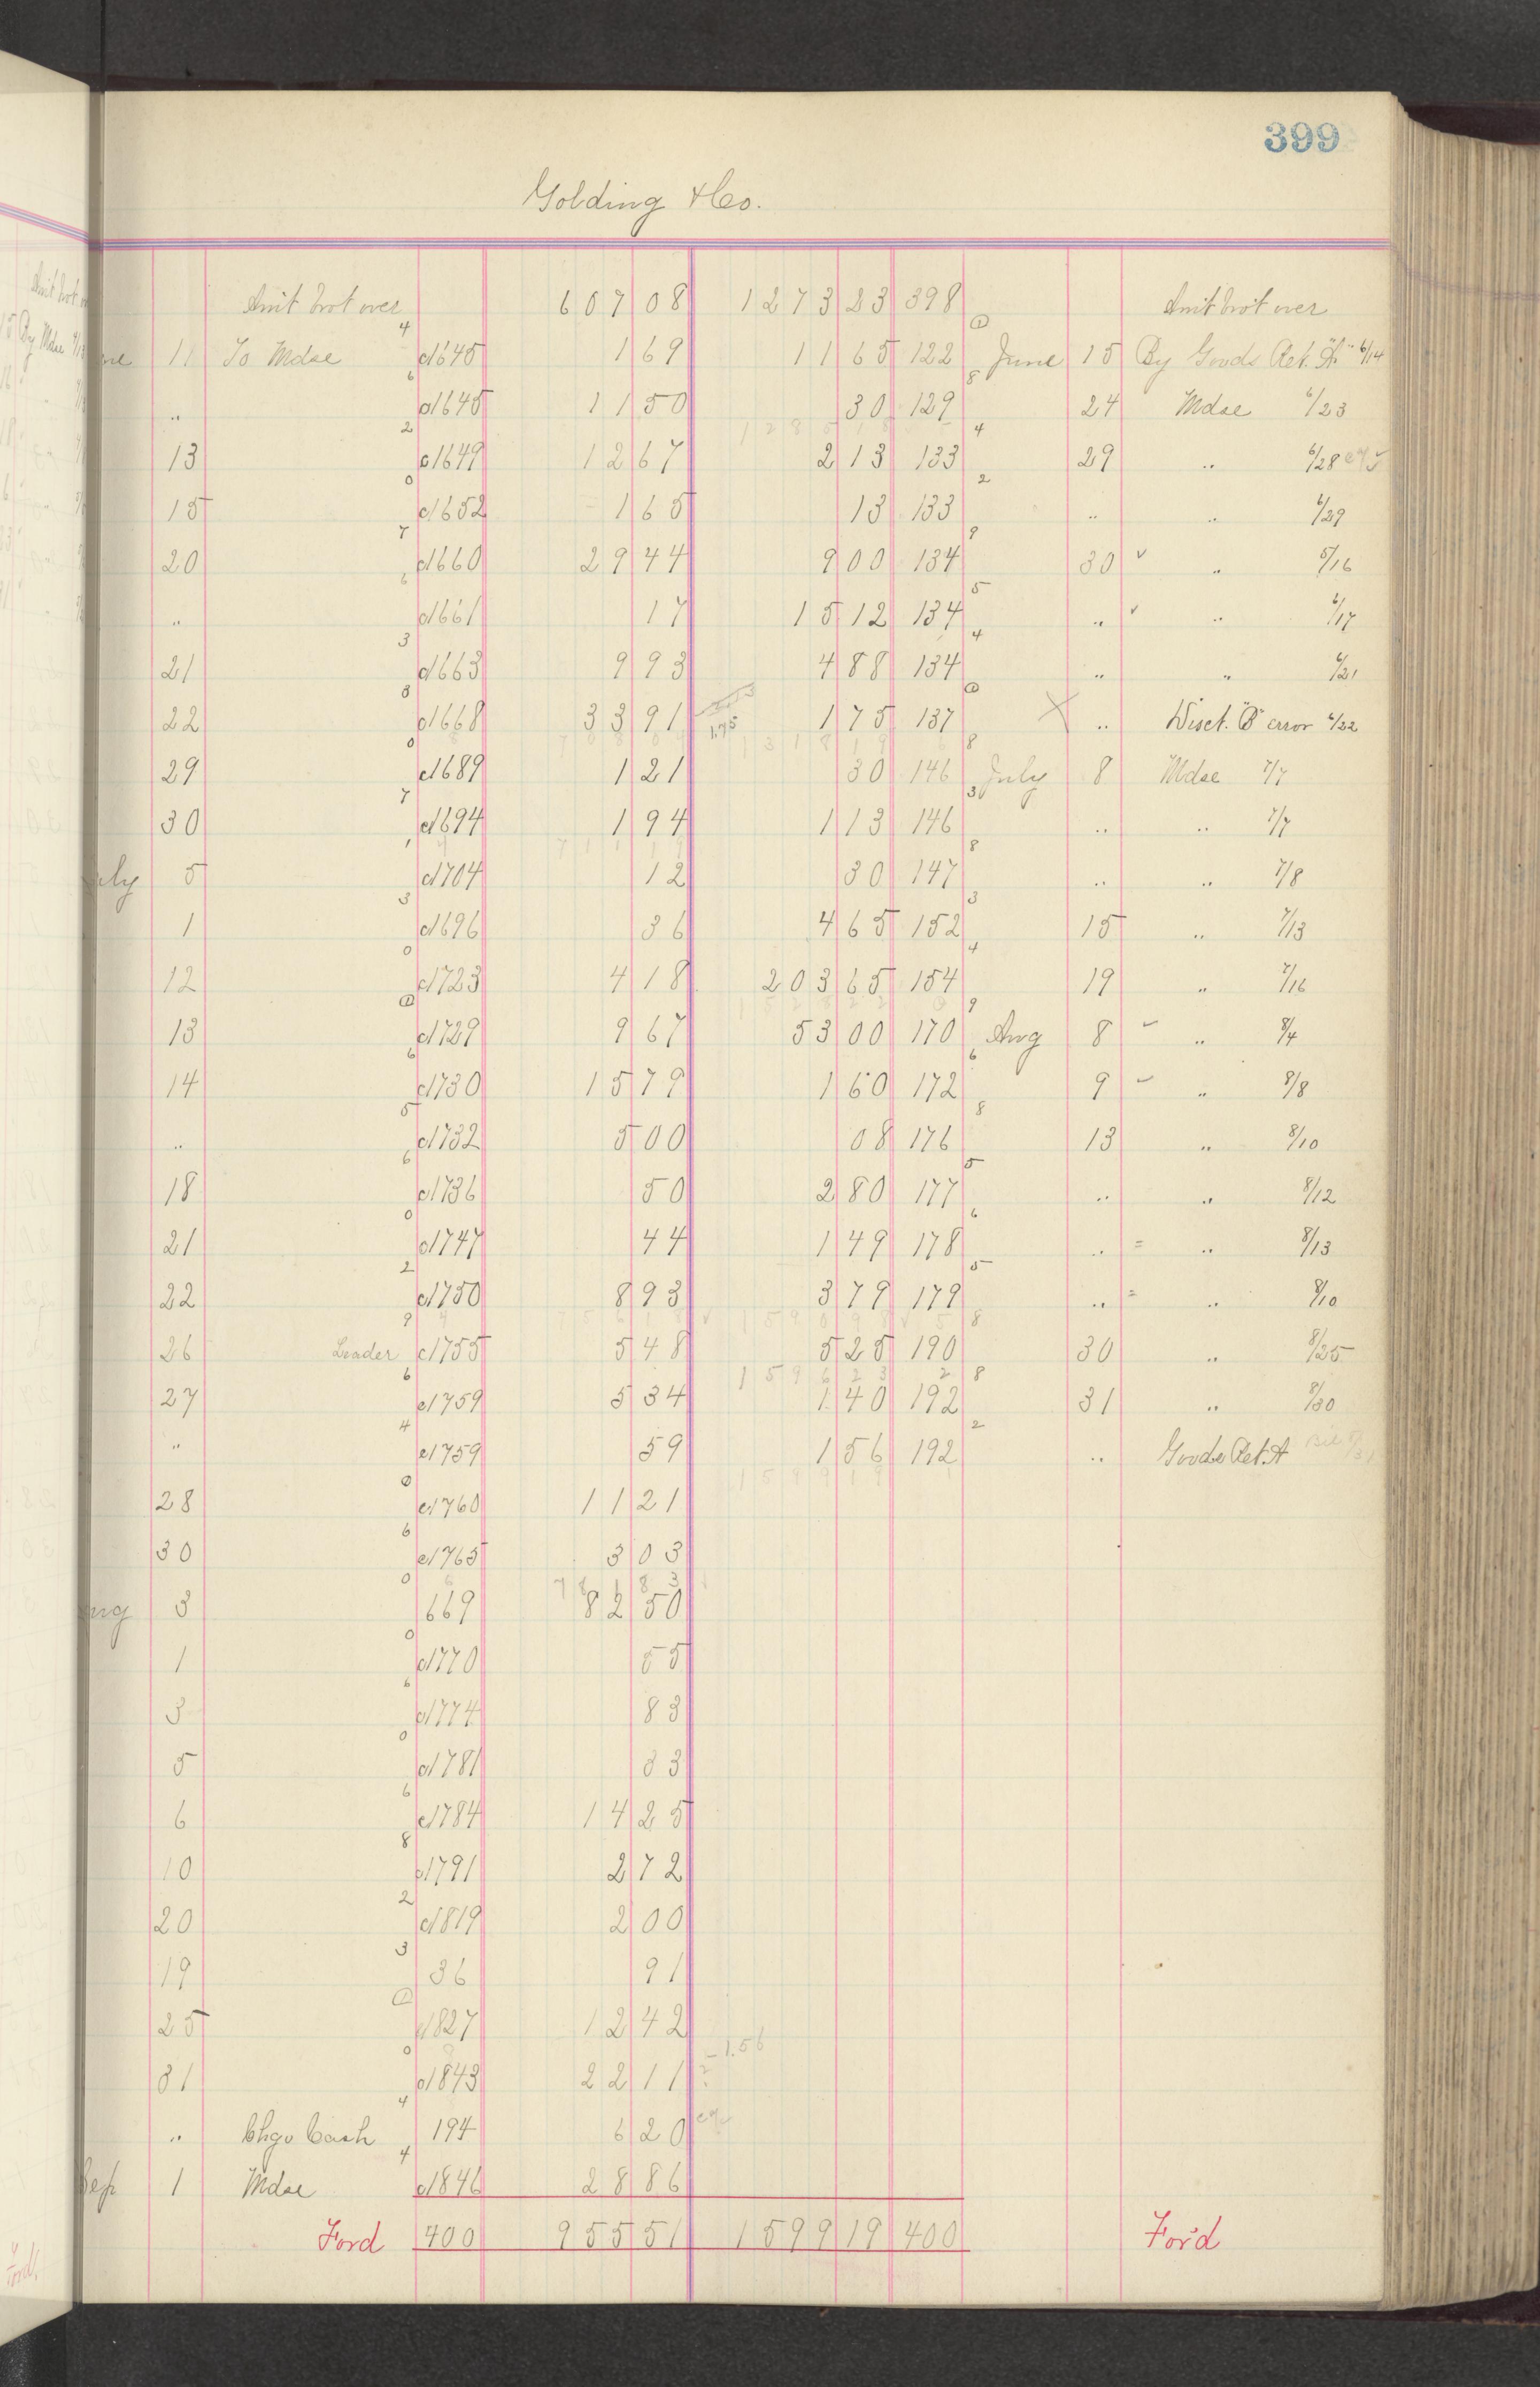 399
Golding & Co.
Amt brot over 607 08 1273 23 398 Amt brot over
11 To Mdse c1645 1 69 11 65 122 June 15 By Goods Ret. "A" 6/14
" c1645 11 50 30 129 24 Mdse 6/23
13 c1649 12 67 2 13 133 29 " 6/28
15 c1652 1 65 13 133 " " 6/29
20 c1660 29 44 9 00 134 30 " 5/16
" c1661 17 15 12 134 " " 6/17
21 c1663 9 93 4 88 134 " " 6/21
22 c1668 33 91 1.75 1 75 137 " Disct. "B" error 6/22
29 c1689 1 21 30 146 July 8 Mdse 7/7
30 c1694 1 94 1 13 146 " " 7/7
July 5 c1704 12 30 147 " " 7/8
1 c1696 36 4 65 152 15 " 7/13
12 c1723 4 18 203 65 154 19 " 7/16
13 c1729 9 67 53 00 170 Aug 8 " 8/4
14 c1730 15 79 1 60 172 9 " 8/8
" c1732 5 00 08 176 13 " 8/10
18 c1736 50 2 80 177 " " 8/12
21 c1747 44 1 49 178 " " 8/13
22 c1750 8 93 3 79 179 " " 8/10
26 Leader c1755 5 48 5 25 190 30 " 8/25
27 c1759 5 34 1 40 192 31 " 8/30
" c1759 59 1 56 192 " Goods Ret. A
28 c1760 11 21
30 c1765 3 03
Aug 3 669 82 50
1 c1770 55
3 c1774 83
5 c1781 33
6 c1784 14 25
10 c1791 2 72
20 c1819 2 00
19 36 91
25 c1827 12 42
31 c1843 22 11 - 1.56
" Chgo Cash 194 6 20
Sep 1 Mdse c1846 28 86
Ford 400 955 51 1599 19 400 Ford